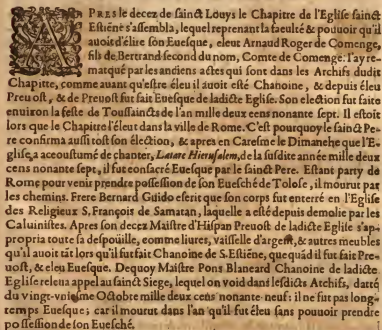 APRES le decez de sainct Louys le Chapitre de l'Eglise sainct
Estiéne s'assembla, lequel reprenant la faculté & pouuoir qu'il
auoit d'élire son Euesque, eleut Arnaud Roger de Comenge,
fils de Bertrand second du nom, Comte de Comenge. I'ay re-
matqué par les anciens actes qui sont dans les Archifs dudit
Chapitre, comme auant qu'estre éleu il auoit esté Chanoine, & depuis éleu
Preuost, & de Preuost fut fait Euesque de ladicte Eglise. Son election fut faite
enuiron la feste de Toussaincts de l'an mille deux cens nonante sept. Il estoit
lors que le Chapitre l'éleut dans la ville de Rome. C'est pourquoy le sainct Pe-
re confirma aussi tost son élection, & apres en Caresme le Dimanche que l'E-
glise, a aceoustumé de chanter, Lætare Hierusalem, de la susdite année mille deux
cens nonante sept, il fut consacré Euesque par le sainct Pere. Estant party de
Rome pour venir prendre possession de son Euesché de Tolose, il mourut par
les chemins. Frere Bernard Guido escrit que son corps fut enterré en l'Eglise
des Religieux S. François de Samatan, laquelle a esté depuis demolie par les
Caluinistes. Apres son decez Maistre d'Hispan Preuost de ladicte Eglise s'ap-
propria toute sa despoüille, comme liures, vaisselle d'argent, & autres meubles
qu'il auoit tãt lors qu'il fut fait Chanoine de S. Estiéne, que quãd il fut fait Pre-
uost, & eleu Euesque. Dequoy Maistre Pons Blaneard Chanoine de ladicte
Eglise releua appel au sainct Siege, lequel on void dans lesdicts Archifs, datté
du vingt-vniesme Octobre mille deux cens nonante neuf: il ne fut pas long-
temps Euesque; car il mourut dans l'an qu'il fut éleu sans pouuoir prendre
possession de son Euesché.